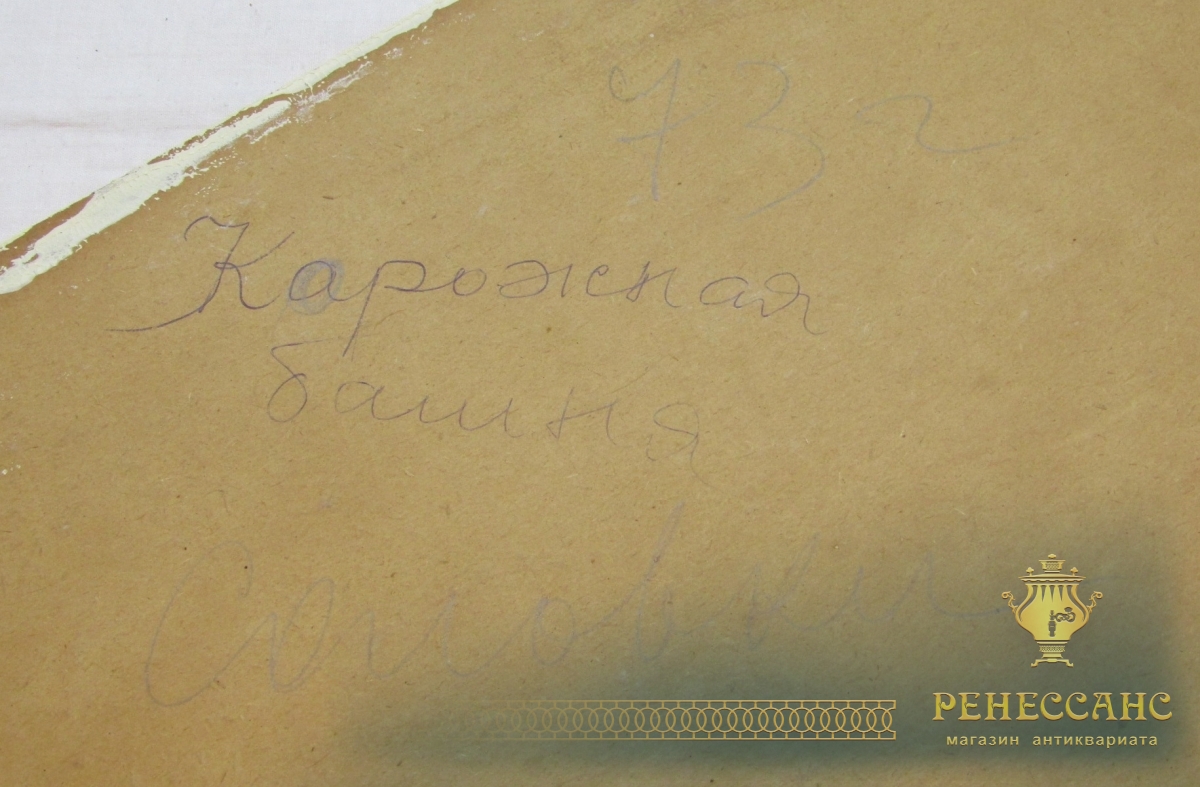 73 г
Карожная
башня
Соловки
РЕНЕССАНС
магазин антиквариата